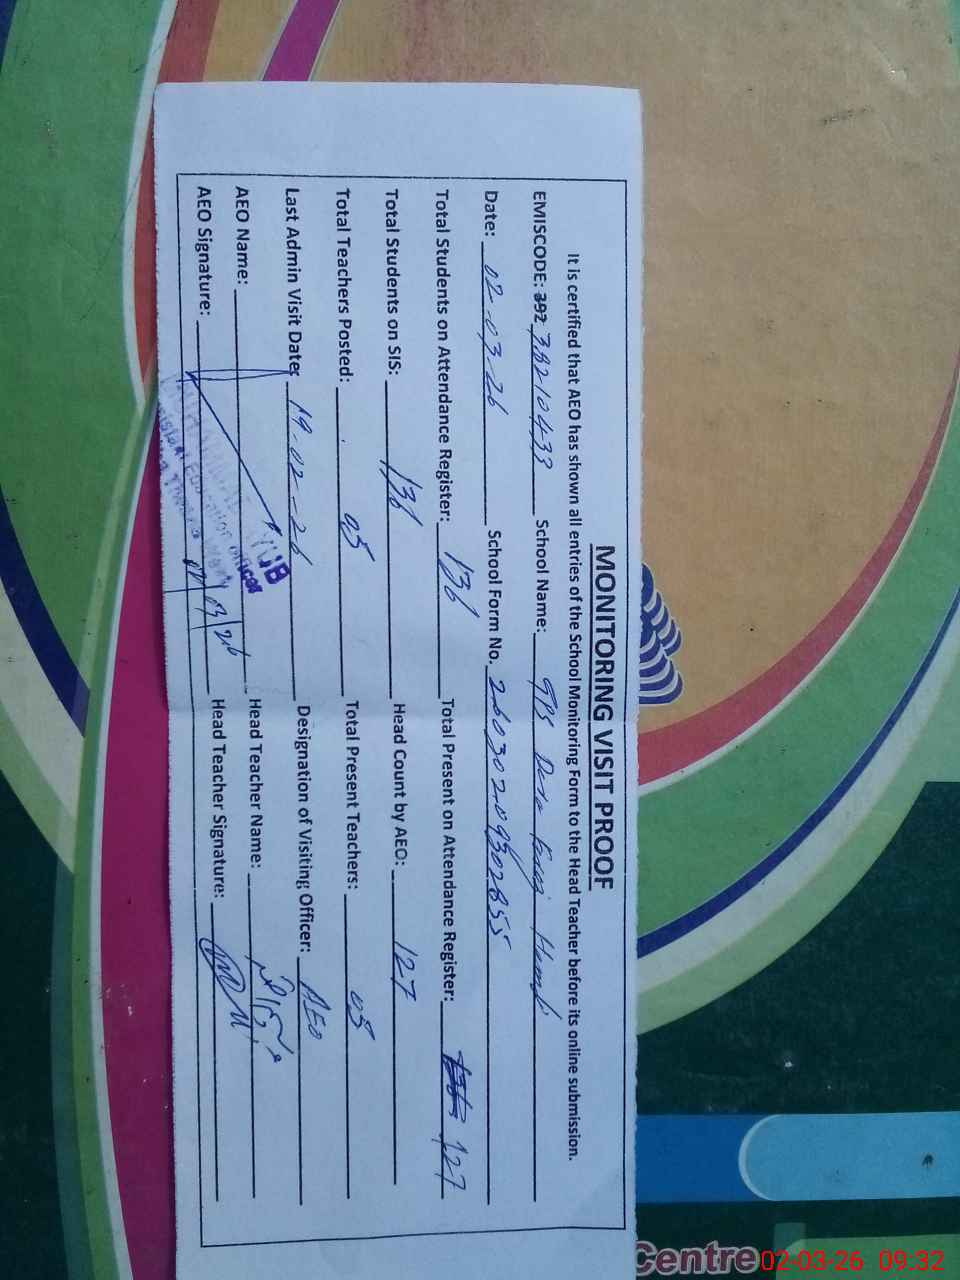 MONITORING VISIT PROOF
It is certified that AEO has shown all entries of the School Monitoring Form to the Head Teacher before its online submission.
EMISCODE: 392 38210433 School Name: GPS Dera
Date: 02-03-26 School Form No. 26030209302855
Total Students on Attendance Register: 136 Total Present on Attendance Register: 136 127
Total Students on SIS: 136 Head Count by AEO: 127
Total Teachers Posted: 05 Total Present Teachers: 05
Last Admin Visit Date: 19-02-26 Designation of Visiting Officer: AEO
AEO Name: Head Teacher Name:
AEO Signature: 02/03/26 Head Teacher Signature:
Education Officer
Centre
02-03-26 09:32